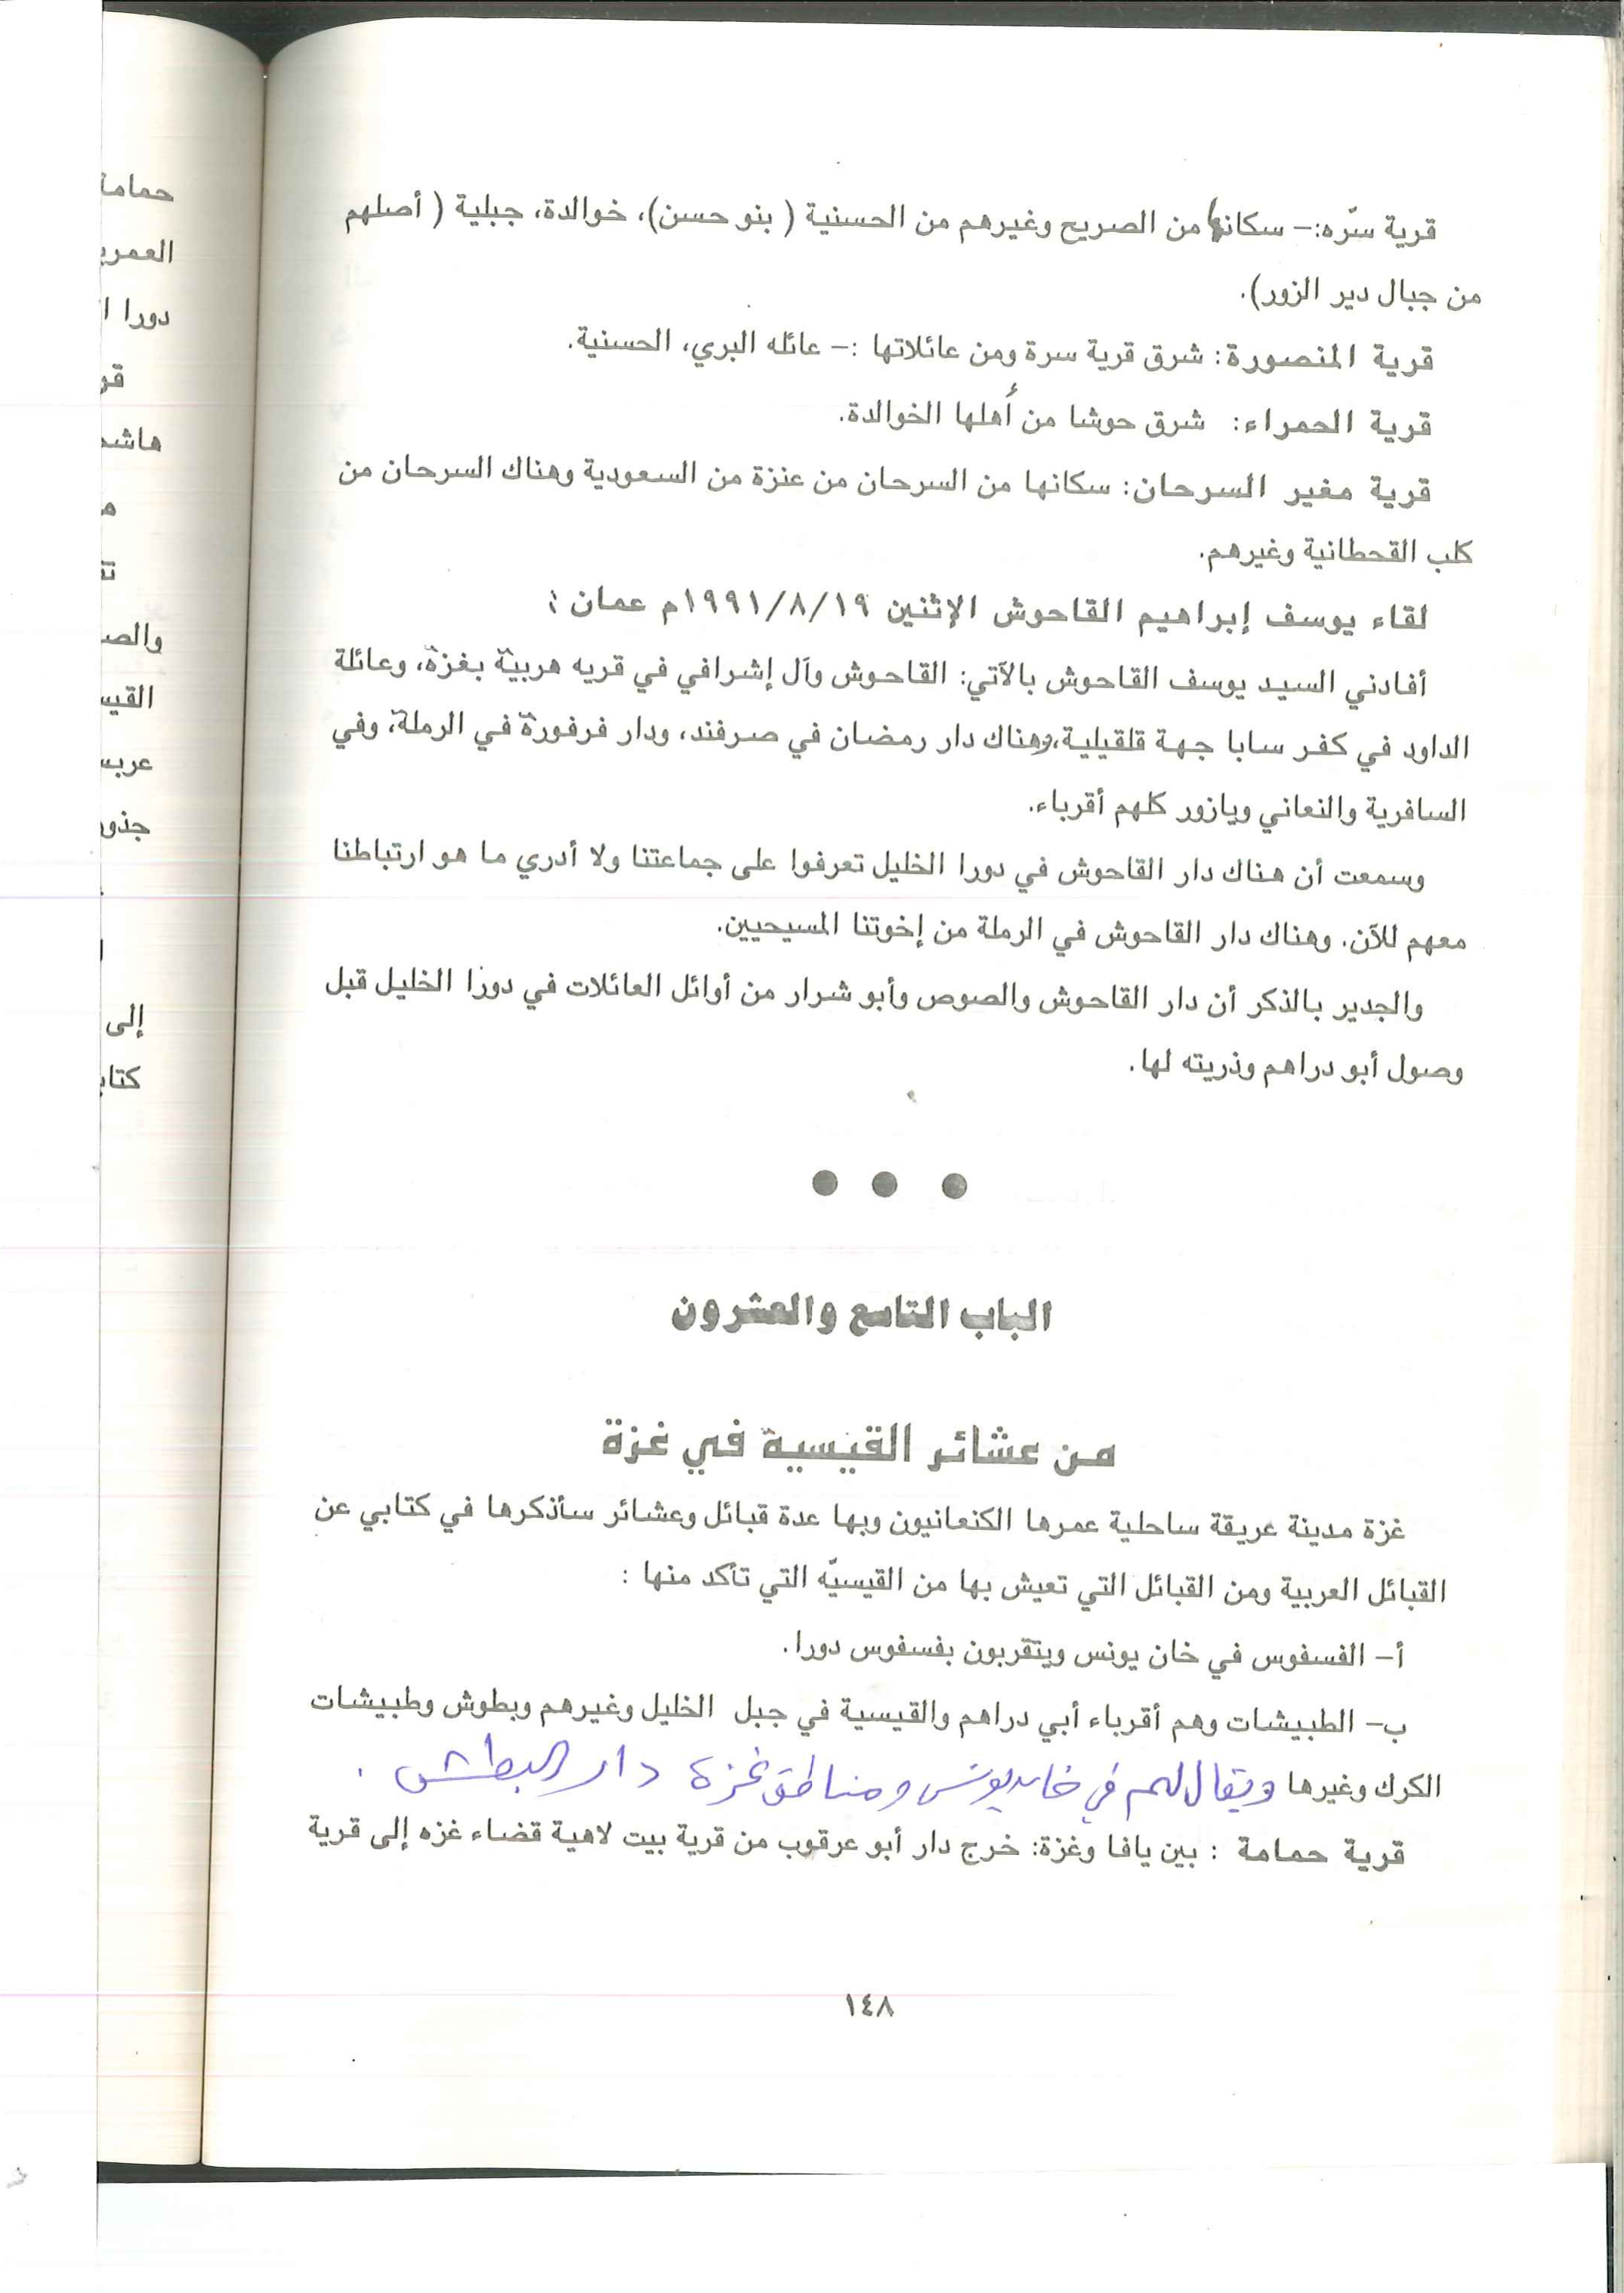 قرية سّره:– سكانها من الصريح وغيرهم من الحسنية ( بنو حسن)، خوالدة، جبلية ( أصلهم
من جبال دير الزور).
قرية المنصورة: شرق قرية سرة ومن عائلاتها :– عائله البري، الحسنية.
قرية الحمراء: شرق حوشا من أهلها الخوالدة.
قرية مغير السرحان: سكانها من السرحان من عنزة من السعودية وهناك السرحان من
كلب القحطانية وغيرهم.
لقاء يوسف إبراهيم القاحوش الإثنين ١٩٩١/٨/١٩م عمان :
أفادني السيد يوسف القاحوش بالآتي: القاحوش وآل إشرافي في قريه هربية بغزة، وعائلة
الداود في كفر سابا جهة قلقيلية، وهناك دار رمضان في صرفند، ودار فرفورة في الرملة، وفي
السافرية والنعاني ويازور كلهم أقرباء.
وسمعت أن هناك دار القاحوش في دورا الخليل تعرفوا على جماعتنا ولا أدري ما هو ارتباطنا
معهم للآن. وهناك دار القاحوش في الرملة من إخوتنا المسيحيين.
والجدير بالذكر أن دار القاحوش والصوص وأبو شرار من أوائل العائلات في دورا الخليل قبل
وصول أبو دراهم وذريته لها.
الباب التاسع والعشرون
من عشائر القيسية في غزة
غزة مدينة عريقة ساحلية عمرها الكنعانيون وبها عدة قبائل وعشائر سأذكرها في كتابي عن
القبائل العربية ومن القبائل التي تعيش بها من القيسيّه التي تأكد منها :
أ– الفسفوس في خان يونس ويتقربون بفسفوس دورا.
ب– الطبيشات وهم أقرباء أبي دراهم والقيسية في جبل الخليل وغيرهم وبطوش وطبيشات
الكرك وغيرها ويقال لهم في خان يونس ومناطق غزة دار البطش .
قرية حمامة : بين يافا وغزة: خرج دار أبو عرقوب من قرية بيت لاهية قضاء غزه إلى قرية
١٤٨
حمامة
دورا
هاشم
والصد
القيس
جذو
إلى
كتاب